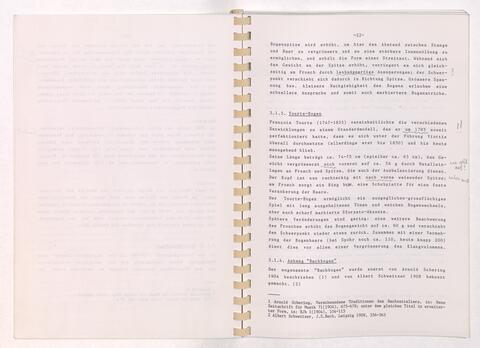 -22-
Bogenspitze wird erhöht, um hier den Abstand zwischen Stange
und Haar zu vergrössern und so eine stärkere Innenwölbung zu
ermöglichen, und erhält die Form einer Streitaxt. Während sich
das Gewicht an der Spitze erhöht, verringert es sich gleich-
zeitig am Frosch durch Aussparungen; der Schwer-
punkt verschiebt sich dadurch in Richtung Spitze. Grössere Span-
nung bzw. kleinere Nachgiebigkeit des Bogens erlauben eine
schnellere Ansprache und somit auch markiertere Bogenstriche.
3.1.5. Tourte-Bogen
François Tourte (1747-1835) vereinheitlichte die verschiedenen
Entwicklungen zu einem Standardmodell, das er um 1785 soweit
perfektioniert hatte, dass es sich unter der Führung Viottis
überall durchsetzte (allerdings erst bis 1830) und bis heute
massgebend blieb.
Seine Länge beträgt ca. 74-75 cm (spielbar ca. 65 cm), das Ge-
wicht vergrösserst sich vorerst auf ca. 56 g durch Metallein-
lagen an Frosch und Spitze, die auch der Ausbalancierung dienen.
Der Kopf ist nun rechteckig mit nach vorne weisender Spitze;
am Frosch sorgt ein Ring bzw. eine Schubplatte für eine feste
Verankerung der Haare.
Der Tourte-Bogen ermöglicht ein ausgeglichen-grossflächiges
Spiel mit lang ausgehaltenen Tönen und weichen Bogenwechseln,
aber auch scharf markierte Sforzato-Akzente.
Spätere Veränderungen sind gering: eine weitere Beschwerung
des Frosches erhöht das Bogengewicht auf ca. 60 g und verschiebt
den Schwerpunkt wieder etwas zurück. Zusammen mit einer Vermeh-
rung der Bogenhaare (bei Spohr noch ca. 150, heute knapp 200)
dient dies vor allem einer Vergrösserung des Klangvolumens.
3.1.6. Anhang "Bachbogen"
Der sogenannte "Bachbogen" wurde zuerst von Arnold Schering
1904 beschrieben (1) und von Albert Schweitzer 1908 bekannt
gemacht. (2)
1 Arnold Schering, Verschwundene Traditionen des Bachzeitalters, in: Neue
Zeitschrift für Musik 71(1904), 675-678; unter dem gleichen Titel in erweiter-
ter Form, in: BJb 1(1904), 104-115
2 Albert Schweitzer, J.S.Bach, Leipzig 1908, 356-363